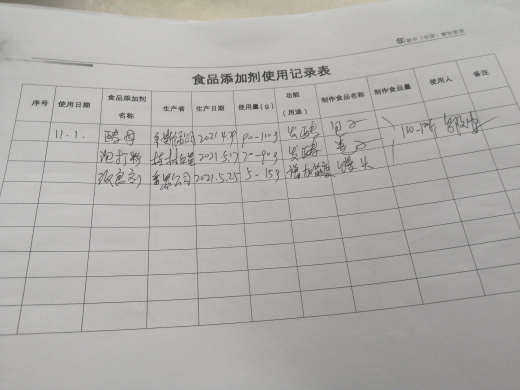 食品添加剂使用记录表
序号 使用日期 食品添加剂名称 生产者 生产日期 使用量(g) 功能(用途) 制作食品名称 制作食品量 使用人 备注
11.1. 酵母 2021.4.8 90-100g 发酵 包子
泡打粉 2021.5.17 70-90g 发酵 卷子
改良剂 公司 2021.5.25 5-15g 馒头